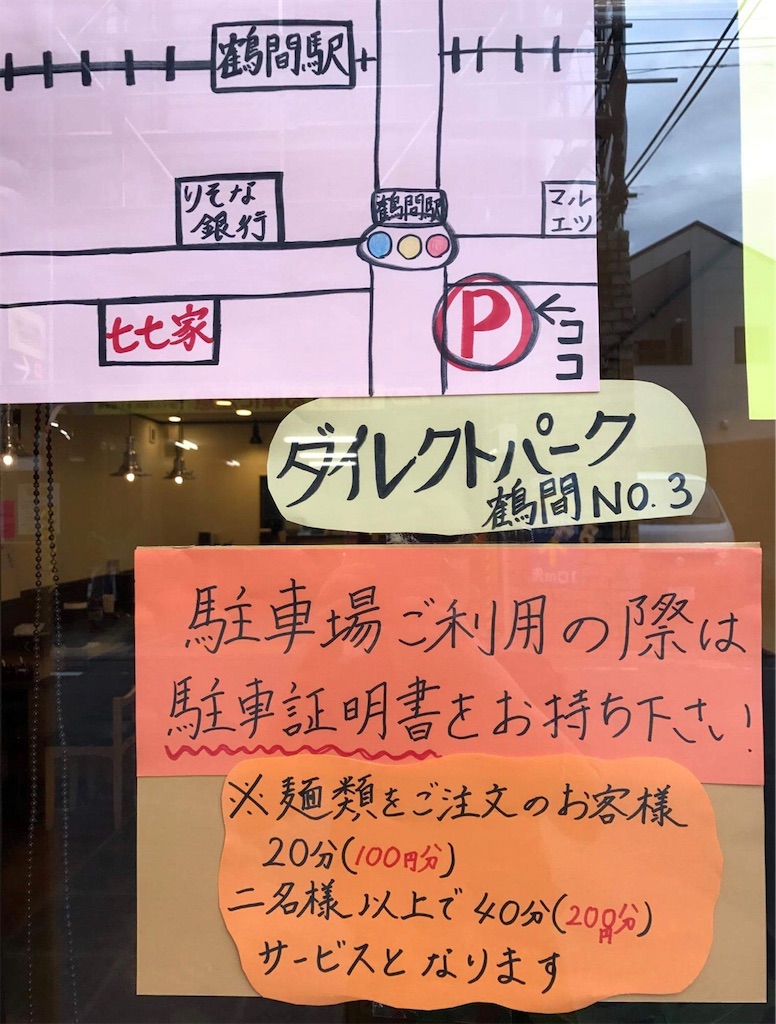 鶴間駅
りそな
銀行
鶴間駅
マル
エツ
七七家
P
←ココ
ダイレクトパーク
鶴間NO.3
駐車場ご利用の際は
駐車証明書をお持ち下さい!
※麺類をご注文のお客様
20分(100円分)
二名様以上で40分(200円分)
サービスとなります